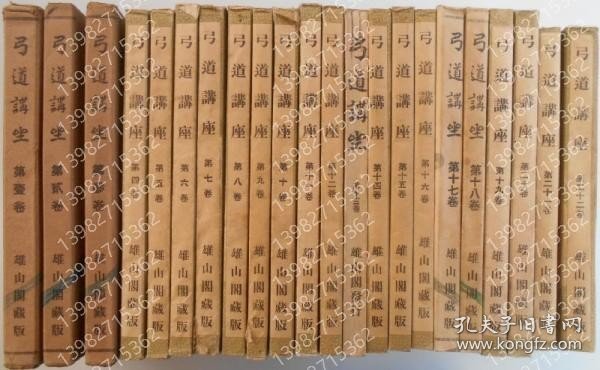 弓道講坐 第壹卷 雄山閣藏版
弓道講坐 第貳卷 雄山閣藏版
弓道講坐 雄山閣藏版
弓道講座 第四 雄山閣藏版
弓道講座 第五卷 雄山閣藏版
弓道講座 第六卷 雄山閣藏版
弓道講座 第七卷 雄山閣藏版
弓道講座 第八卷 雄山閣藏版
弓道講座 第九卷 雄山閣藏版
弓道講座 第十卷 雄山閣藏版
弓道講座 第十一卷 雄山閣藏版
弓道講座 第十二卷 雄山閣藏版
弓道講坐 雄山閣
弓道講座 第十四卷 雄山閣藏版
弓道講座 第十五卷 雄山閣藏版
弓道講座 第十六卷 雄山閣藏版
弓道講坐 第十七卷 雄山閣藏版
弓道講坐 第十八卷 雄山閣藏版
弓道講座 第十九卷 雄山閣藏版
弓道講座 雄山閣藏版
弓道講座 第二十一卷 雄山閣藏版
弓道講座 第二十二卷 雄山閣藏版
13982715362
孔夫子旧书网
www.kongfz.com